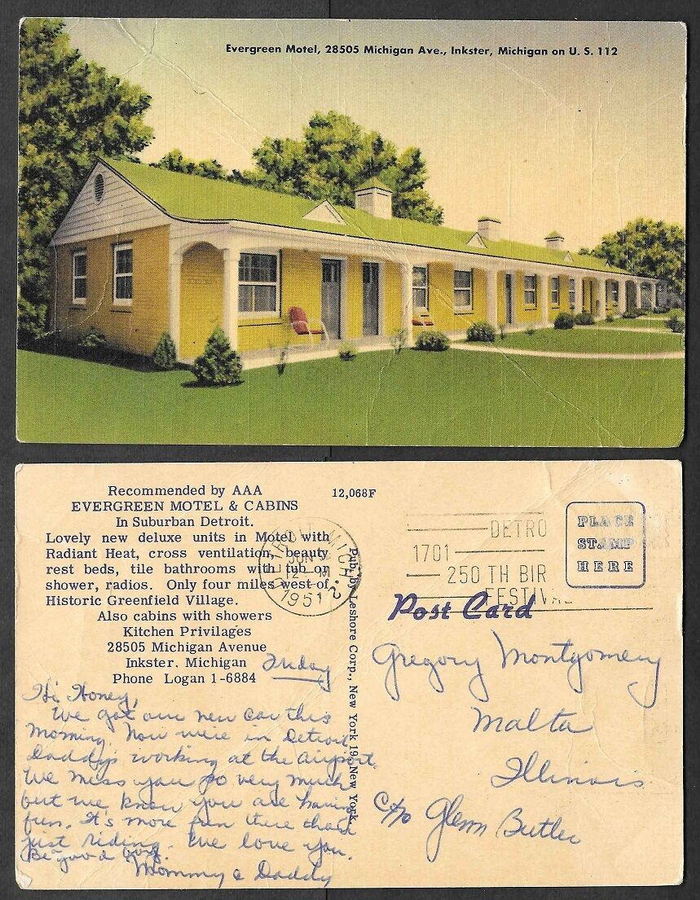 Evergreen Motel, 28505 Michigan Ave., Inkster, Michigan on U. S. 112
Recommended by AAA
EVERGREEN MOTEL & CABINS
In Suburban Detroit.
Lovely new deluxe units in Motel with
Radiant Heat, cross ventilation, beauty
rest beds, tile bathrooms with tub or
shower, radios. Only four miles west of
Historic Greenfield Village.
Also cabins with showers
Kitchen Privilages
28505 Michigan Avenue
Inkster, Michigan
Phone Logan 1-6884
12,068F
Pub. by Leshore Corp., New York 19, New York
DETROIT, MICH.
JUN
12 M
1951
DETRO
1701
250 TH BIR
FESTIVAL
PLACE
STAMP
HERE
Post Card
Friday
Hi Honey,
We got our new car this
morning. Now were in Detroit
Daddy's working at the airport.
We miss you so very much
but we know you are having
fun. It's more fun there than
just riding. We love you.
Be good boy.
Mommy & Daddy
Gregory Montgomery
Malta
Illinois
c/o Glenn Butler